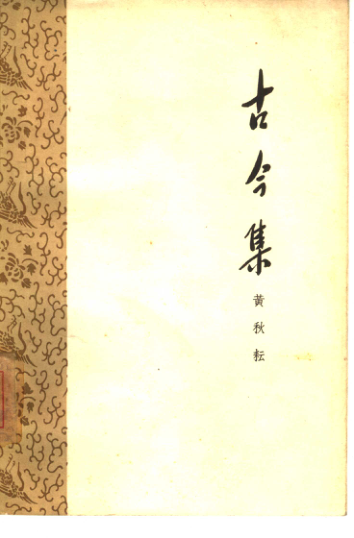 古今集
黄秋耘